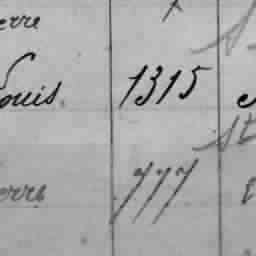 erre
Louis. 1315
St
erre 777